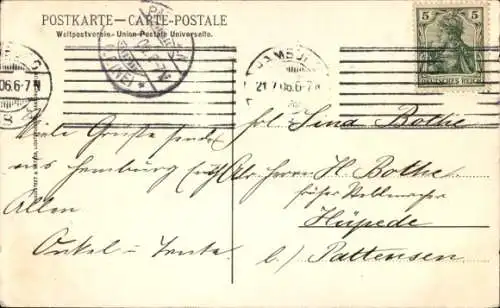 POSTKARTE — CARTE-POSTALE
Weltpostverein.-Union Postale Universelle.
5 5
DEUTSCHES REICH
HAMBURG
21.7.06.6-7N
06.6-7N
Viele Grüße sendet
aus Hamburg
Allen
Onkel u. Tante
Frl. Lina Bothe
Adr. Herrn H. Bothe
früher
Hüpede
b/ Pattensen